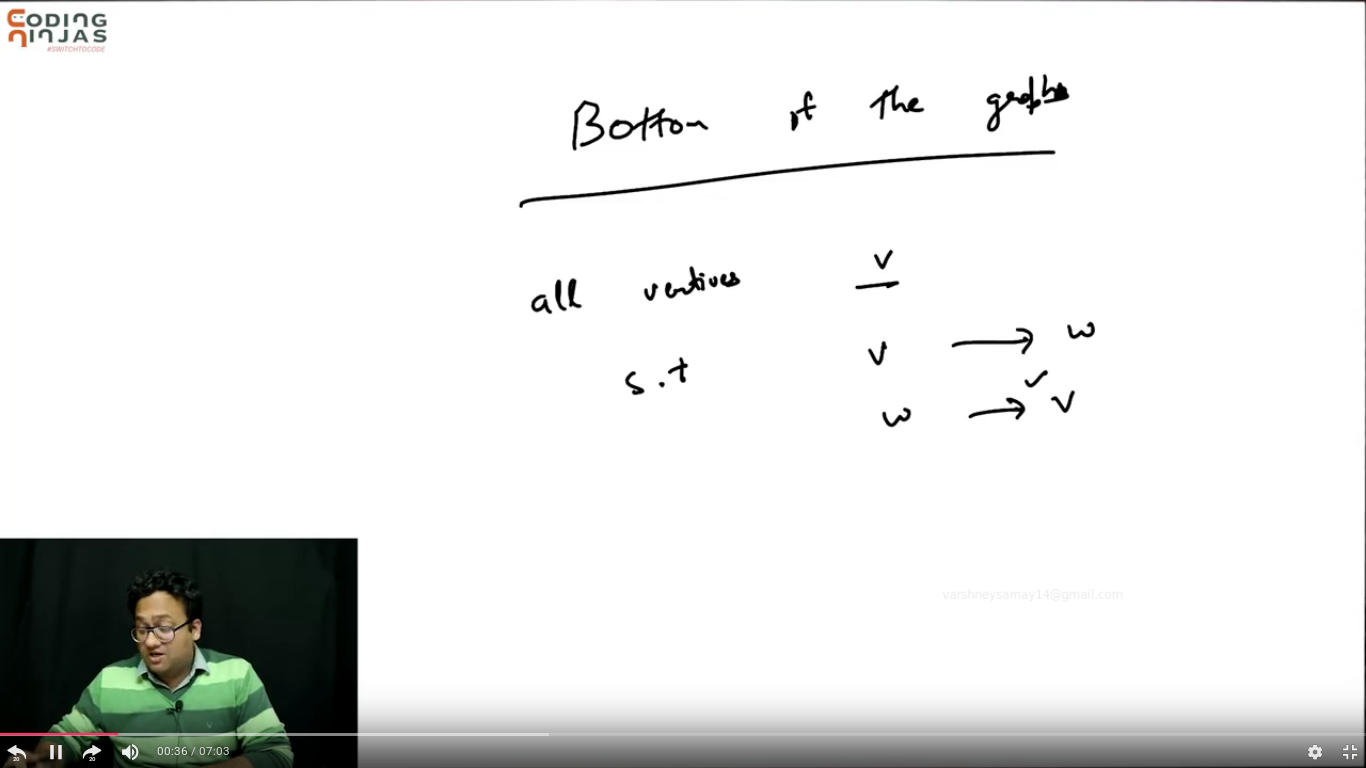 CODING
NINJAS
#SWITCHTOCODE
Bottom of the graph
all vertives v
s.t v → w
w → v
varshneysamay14@gmail.com
20 20 00:36 / 07:03